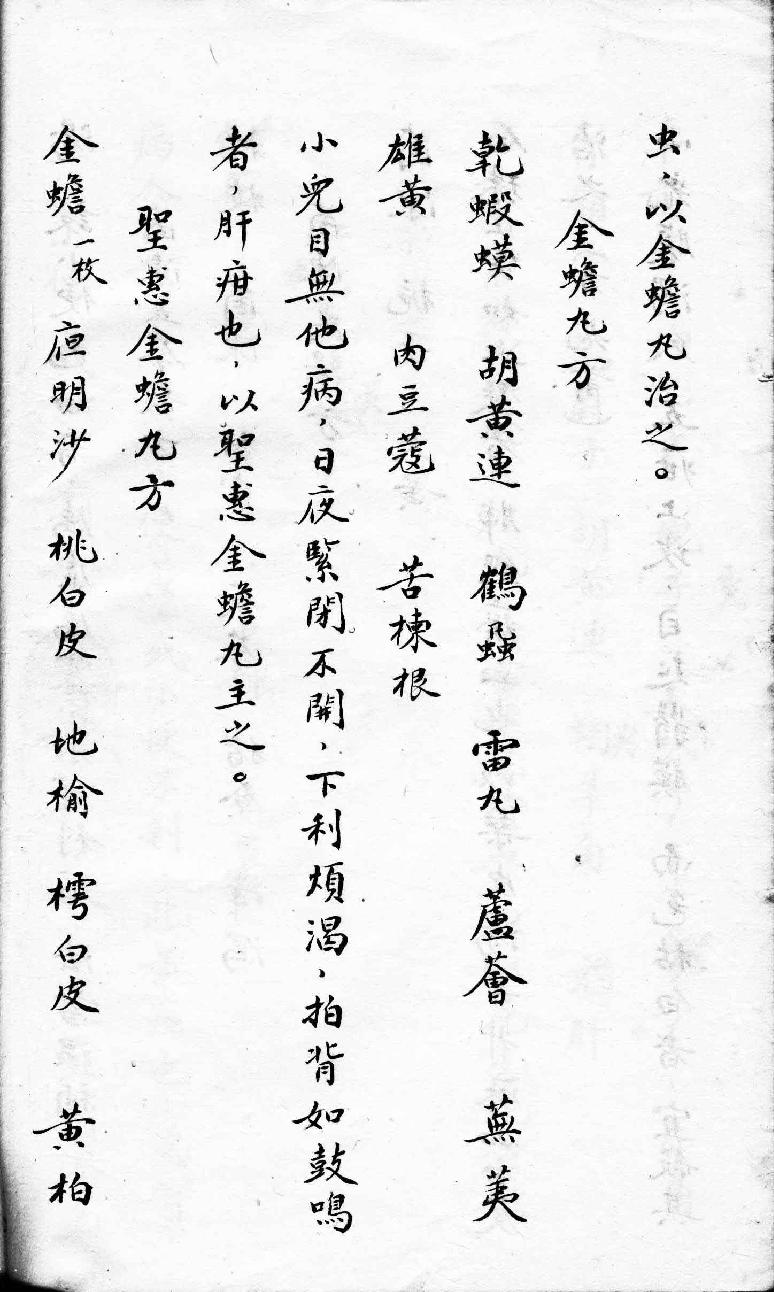 虫，以金蟾丸治之。
金蟾丸方
乾蝦蟆　胡黃連　鶴蝨　雷丸　蘆薈　蕪荑
雄黃　肉豆蔻　苦楝根
小兒目無他病，日夜緊閉不開，下利煩渴，拍背如鼓鳴
者，肝疳也，以聖惠金蟾丸主之。
聖惠金蟾丸方
金蟾一枚　夜明沙　桃白皮　地榆　樗白皮　黃柏